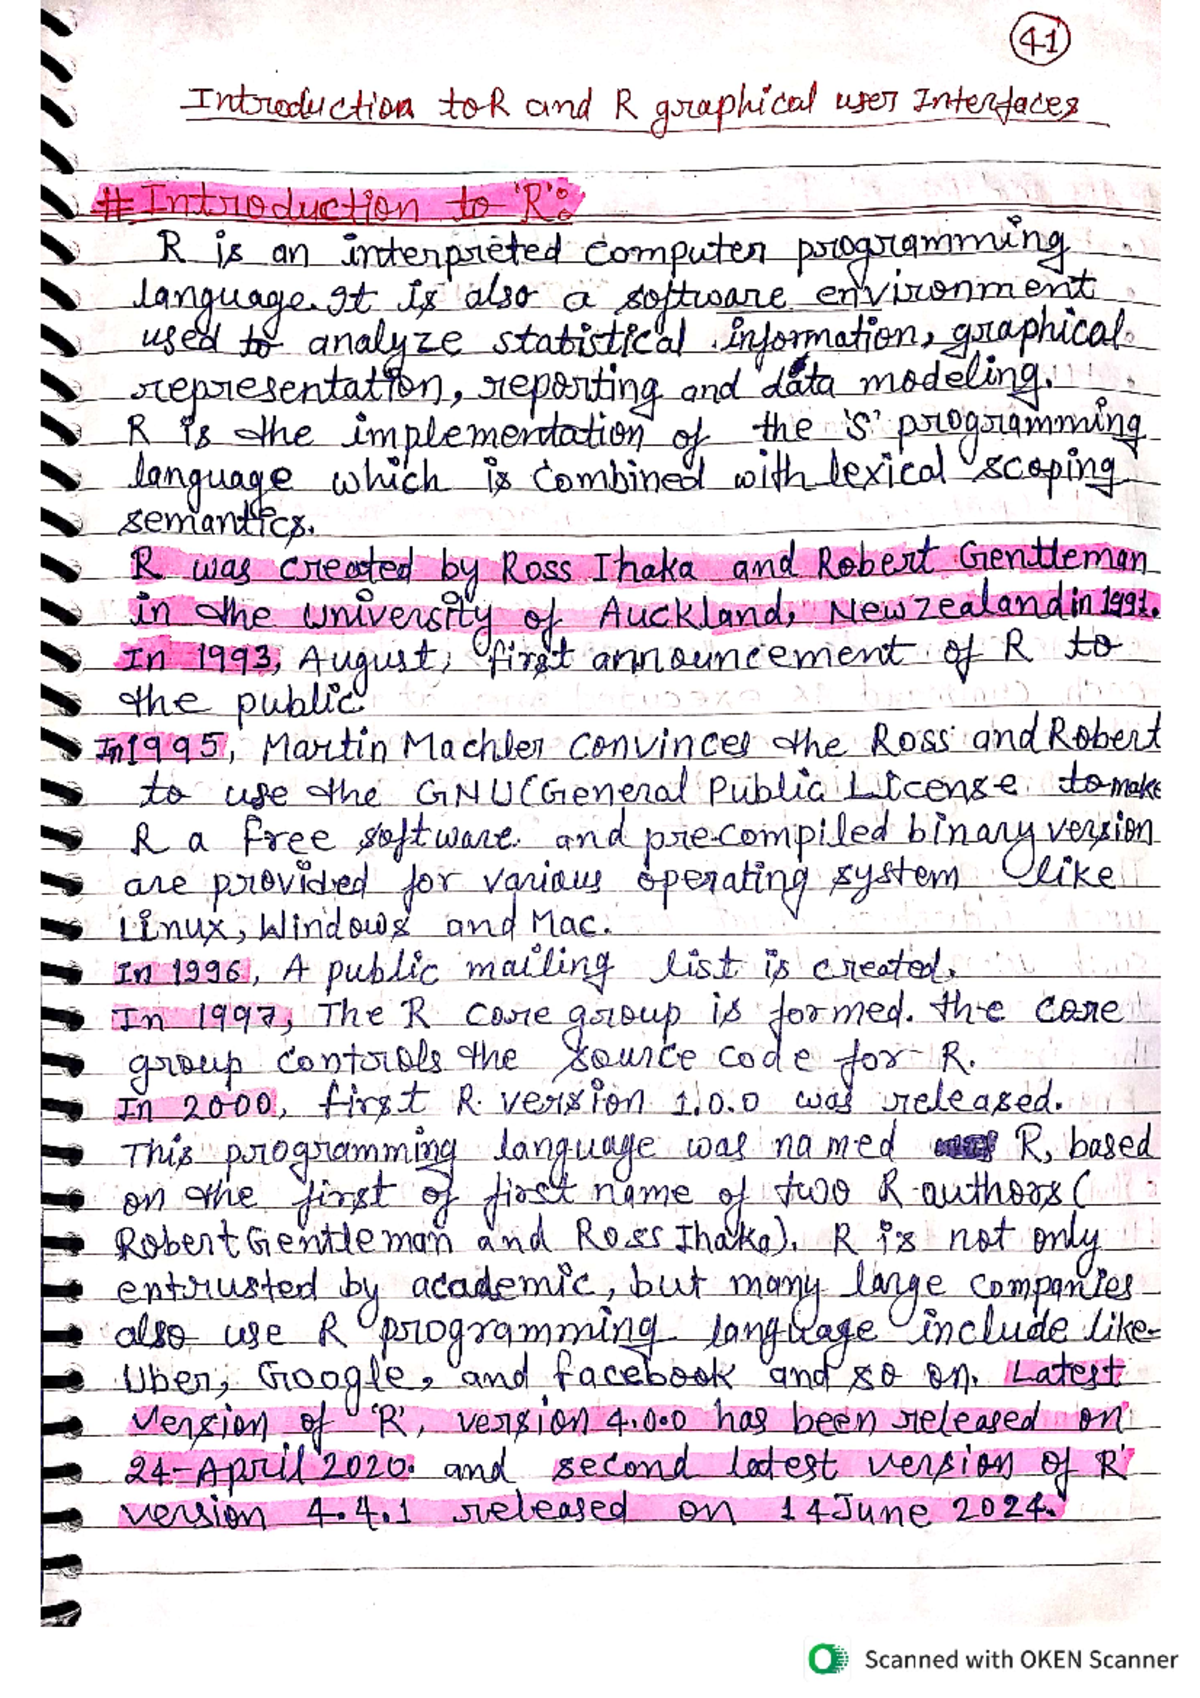 41
Introduction to R and R graphical user Interfaces
# Introduction to 'R':
R is an interpreted computer programming
language. It is also a software environment
used to analyze statistical information, graphical
representation, reporting and data modeling.
R is the implementation of the 'S' programming
language which is combined with lexical scoping
semantics.
R was created by Ross Ihaka and Robert Gentleman
in the university of Auckland, New Zealand in 1991.
In 1993, August, first announcement of R to
the public.
In 1995, Martin Machler convinces the Ross and Robert
to use the GNU(General Public License to make
R a free software. and pre-compiled binary version
are provided for various operating system like
Linux, Windows and Mac.
In 1996, A public mailing list is created.
In 1997, The R core group is formed. the core
group controls the source code for R.
In 2000, first R version 1.0.0 was released.
This programming language was named R, based
on the first of first name of two R authors (
Robert Gentleman and Ross Ihaka). R is not only
entrusted by academic, but many large companies
also use R programming language include like
Uber, Google, and facebook and so on. Latest
version of 'R', version 4.0.0 has been released on
24-April 2020. and second latest version of R'
version 4.4.1 released on 14 June 2024.
Scanned with OKEN Scanner